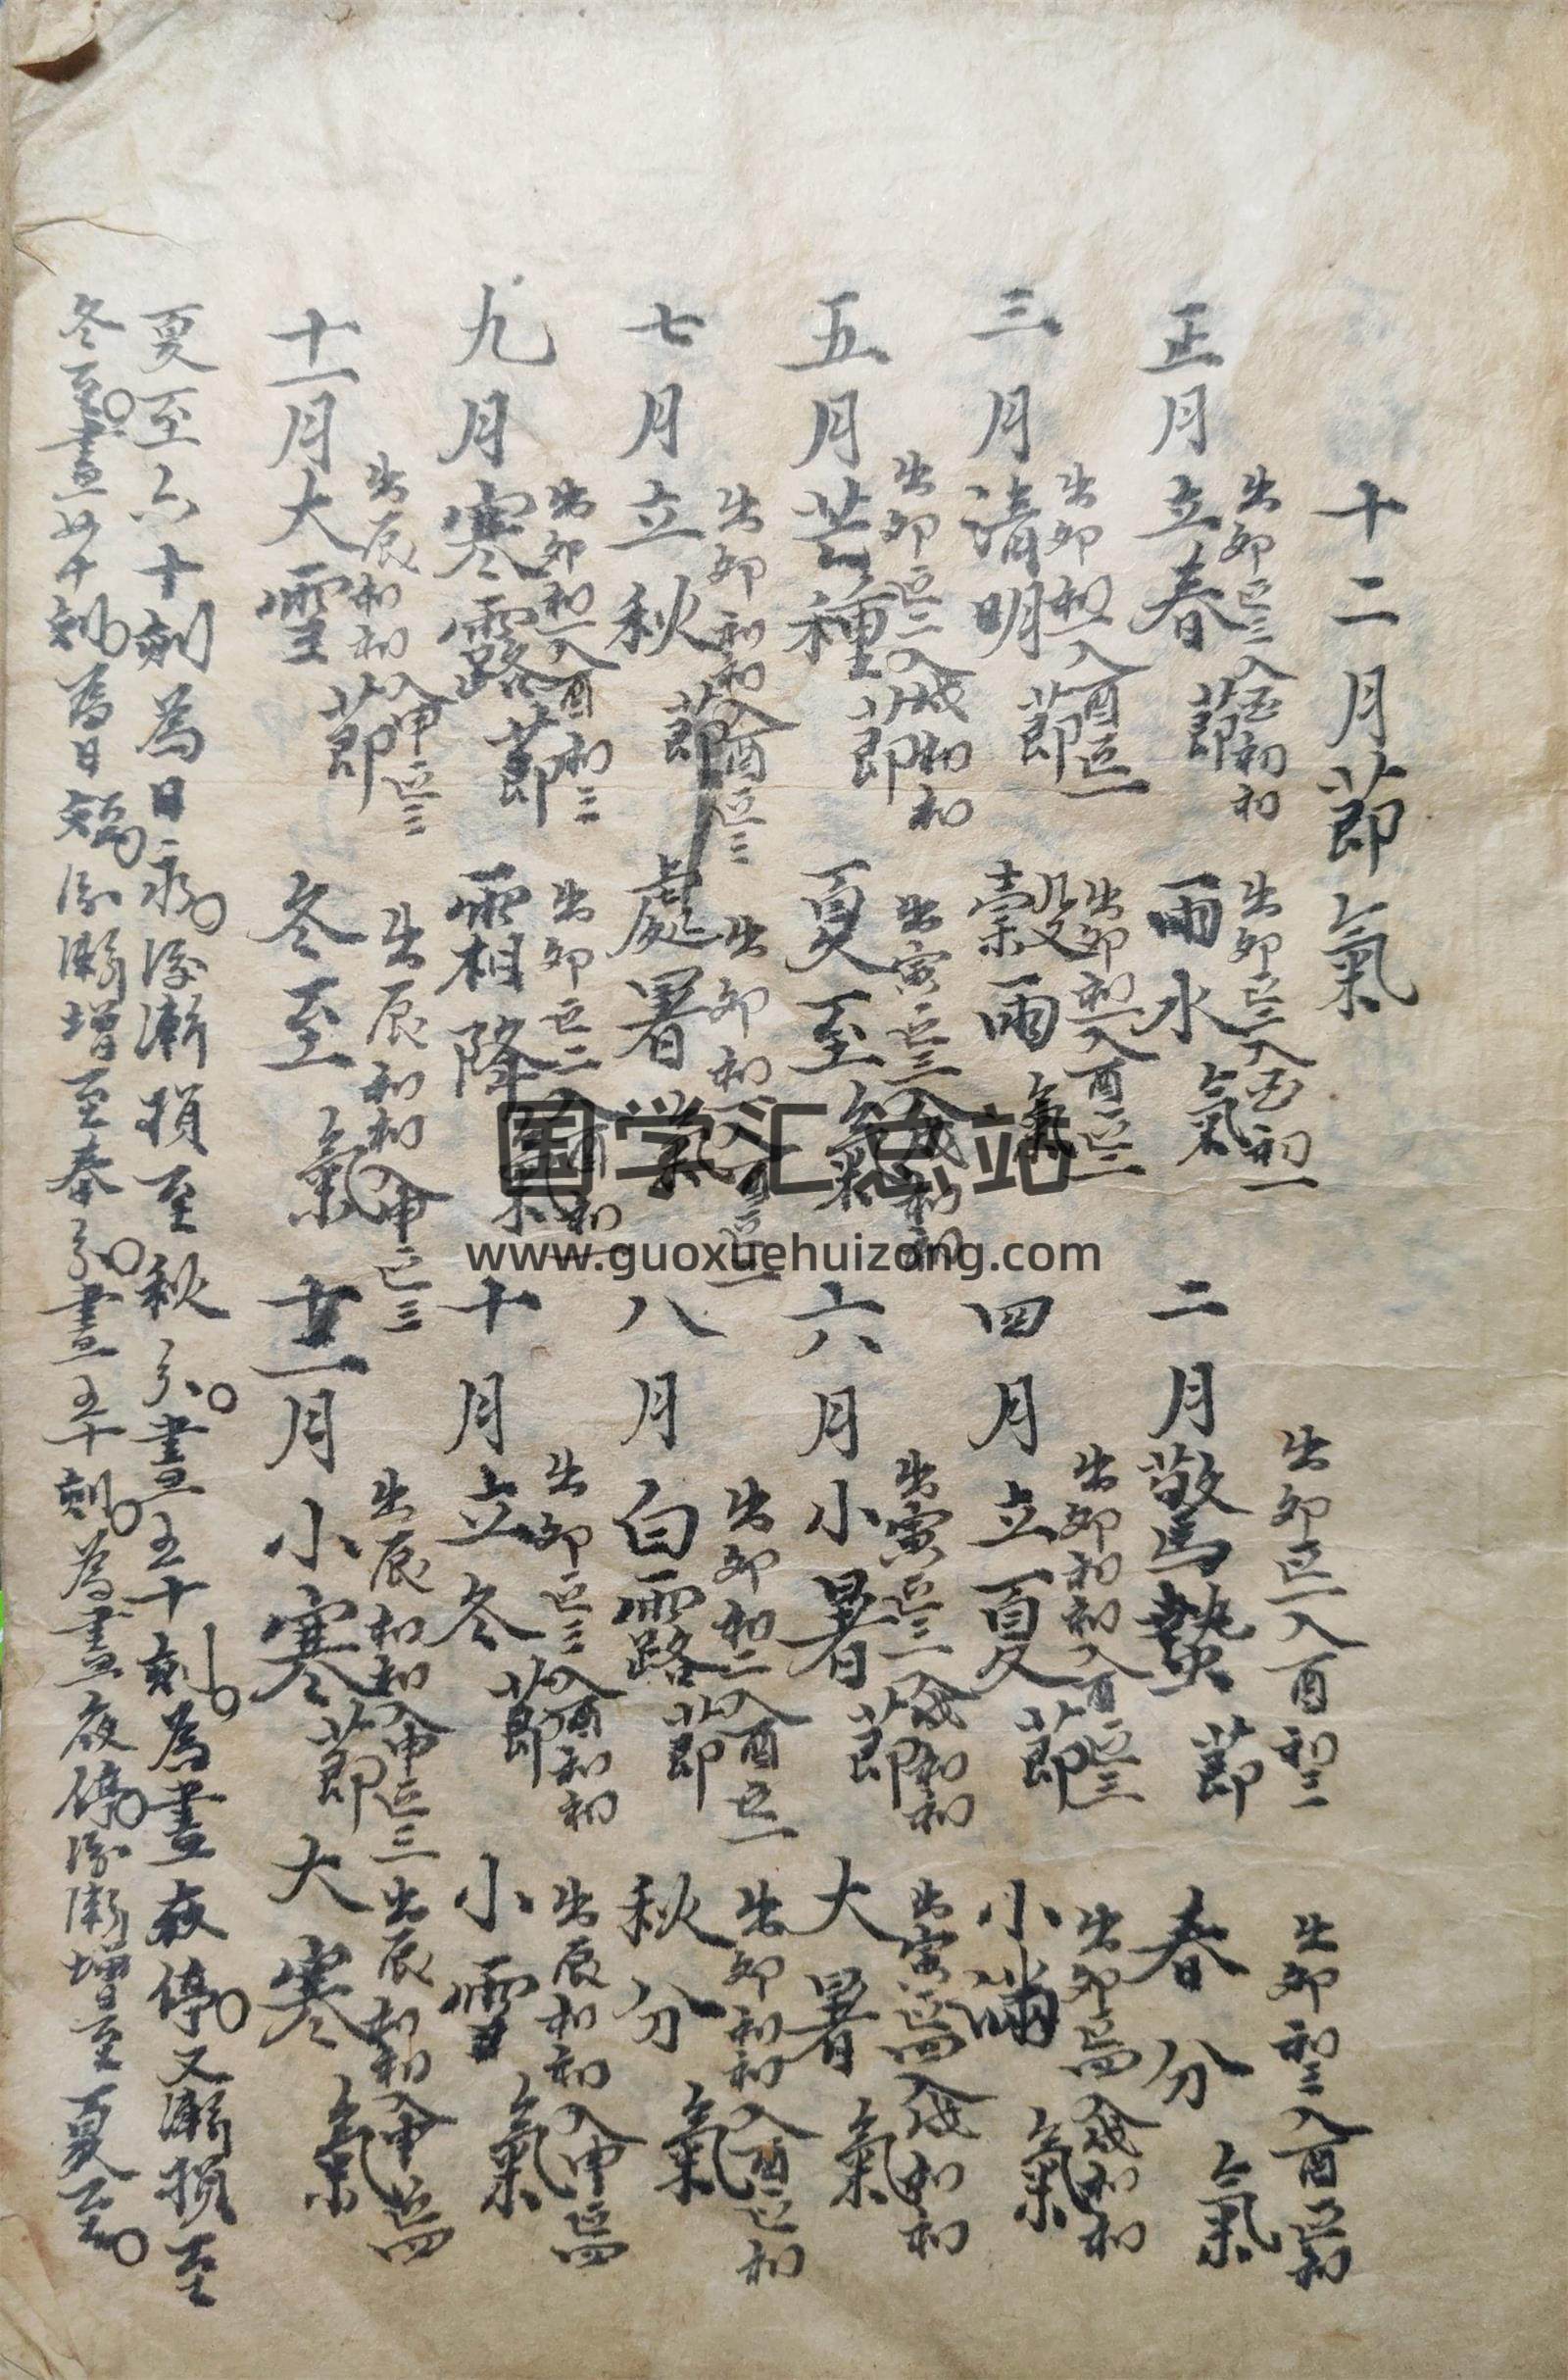 十二月節氣
出卯正三入酉初初
出卯正二入酉初一
出卯正一入酉初二
出卯初三入酉正初
正月立春節 雨水氣 二月驚蟄節 春分氣
出卯初二入酉正一
出卯初一入酉正二
出卯初初入酉正三
出卯正四入戌初初
三月清明節 穀雨氣 四月立夏節 小滿氣
出卯正二入戌初初
出寅正三入戌初初
出寅正三入戌初初
出寅正四入戌初初
五月芒種節 夏至氣 六月小暑節 大暑氣
出卯初初入酉正三
出卯初一入酉正二
出卯初二入酉正一
出卯初初入酉正初
七月立秋節 處暑氣 八月白露節 秋分氣
出卯初一入酉初三
出卯正二入酉初一
出卯正三入酉初初
出辰初初入申正四
九月寒露節 霜降氣 十月立冬節 小雪氣
出辰初初入申正三
出辰初初入申正三
出辰初初入申正三
出辰初初入申正四
十一月大雪節 冬至氣 十二月小寒節 大寒氣
夏至六十刻為日永後漸損至秋分晝五十刻為晝夜停又漸損至
冬至晝四十刻為日短後漸增至春分晝五十刻為晝夜停後漸增至夏至
国学汇总站
www.guoxuehuizong.com